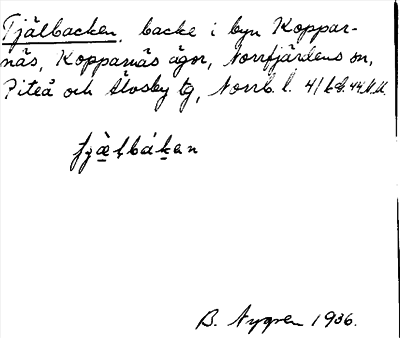 Tjälbacken, backe i byn Koppar-
näs, Kopparnäs ägor, Norrfjärdens sn,
Piteå och Älvsby tg, Norrb. l. 41
fjälbákan
B. Nygren 1936.